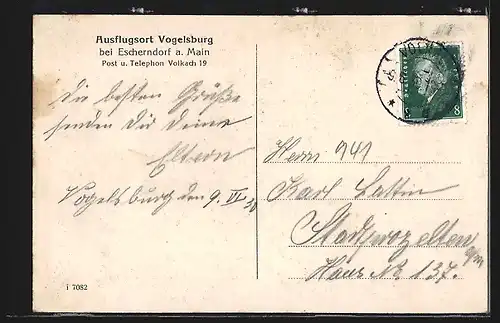 Ausflugsort Vogelsburg
bei Escherndorf a. Main
Post u. Telephon Volkach 19
Die besten Grüße
senden Dir Deine
Eltern
Vogelsburg den 9. VI 30
Herrn
Karl
Stadtprozelten
a/M
Haus No 137.
8 8
i 7082